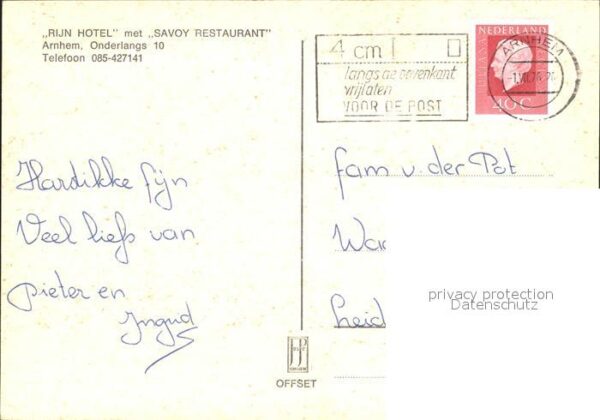 „RIJN HOTEL" met „SAVOY RESTAURANT"
Arnhem, Onderlangs 10
Telefoon 085-427141
4 cm
langs de bovenkant
vrijlaten
VOOR DE POST
NEDERLAND
JULIANA
40c
ARNHEM
Hardikke fijn
Veel liefs van
Pieter en
Ingrid
fam v. der Pot
privacy protection
Datenschutz
OFFSET